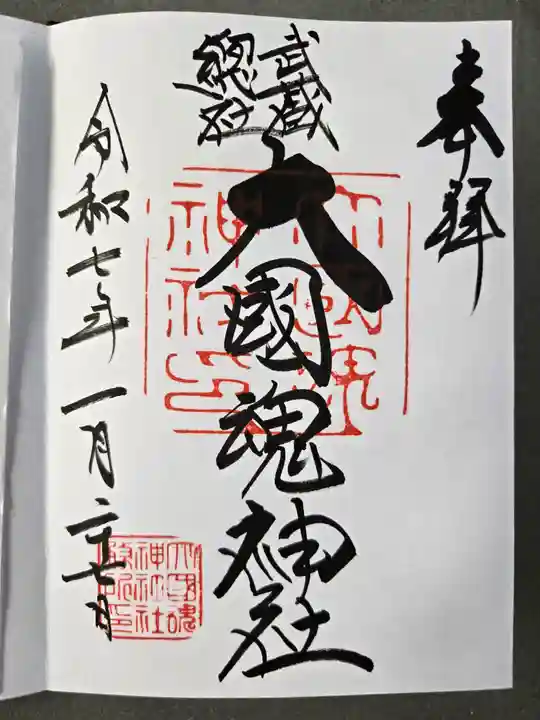 奉拜
武蔵
總社
大國魂神社
大國魂
神社印
令和七年一月二十七日
大國魂
神社社
務所印